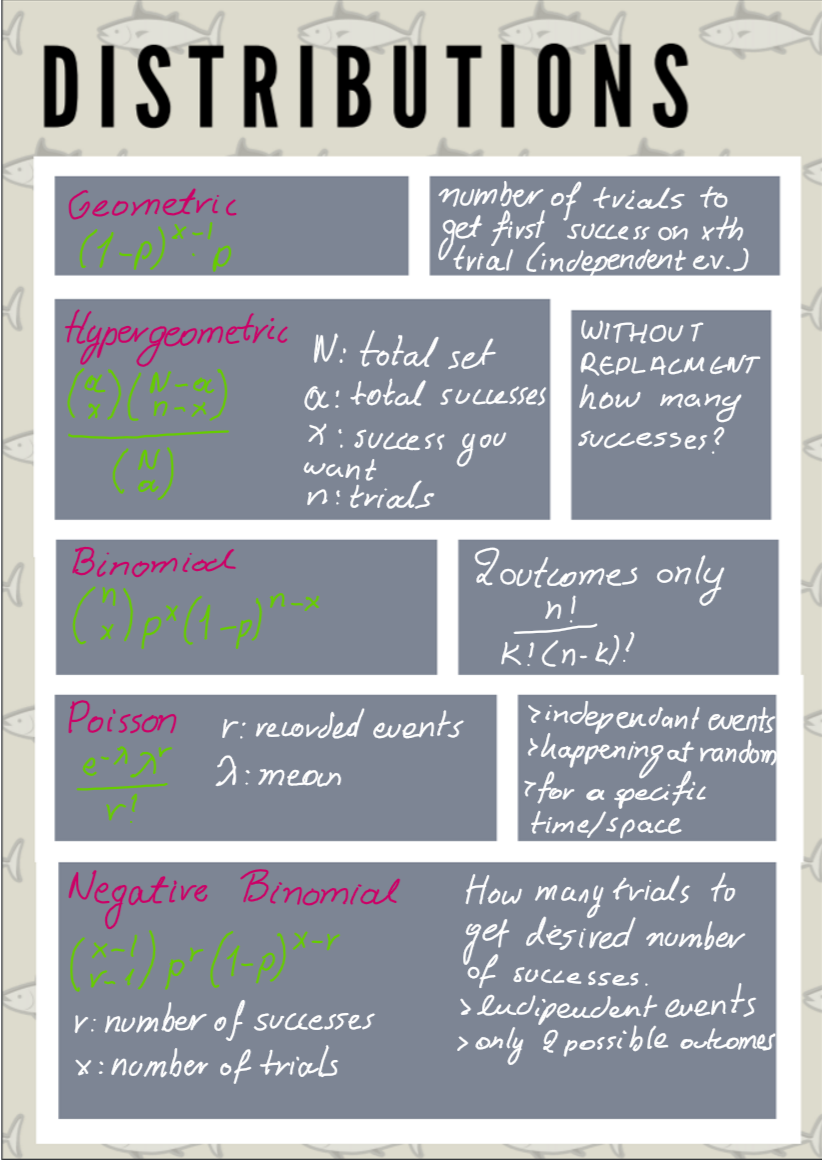 DISTRIBUTIONS
Geometric
(1-p)^{x-1} · p
number of trials to
get first success on xth
trial (independent ev.)
Hypergeometric
\frac{\binom{a}{x}\binom{N-a}{n-x}}{\binom{N}{a}}
N: total set
a: total successes
x: success you
want
n: trials
WITHOUT
REPLACMENT
how many
successes?
Binomial
\binom{n}{x} p^x (1-p)^{n-x}
2 outcomes only
\frac{n!}{k!(n-k)!}
Poisson
\frac{e^{-λ} λ^r}{r!}
r: recorded events
λ: mean
>independant events
>happening at random
>for a specific
time/space
Negative Binomial
\binom{x-1}{r-1} p^r (1-p)^{x-r}
r: number of successes
x: number of trials
How many trials to
get desired number
of successes.
>Indipendent events
>only 2 possible outcomes